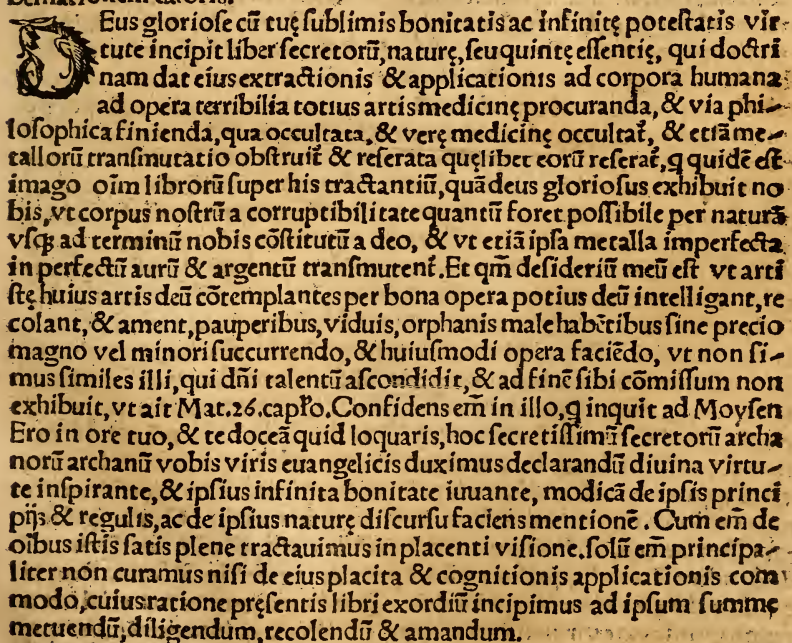 Deus gloriose cū tuę sublimis bonitatis ac infinitę potestatis vir-
tute incipit liber secretorū, naturę, seu quintę essentię, qui doctri
nam dat eius extractionis & applicationis ad corpora humana
ad opera terribilia totius artis medicinę procuranda, & via phi-
losophica finienda, qua occultata, & verę medicinę occultat̄, & etiā me-
tallorū transmutatio obstruit̄ & reserata quęlibet eorū reserat̄, q quidē est
imago oīm librorū super his tractantiū, quā deus gloriosus exhibuit no
bis, vt corpus nostrū a corruptibilitate quantū foret possibile per naturā
vsq; ad terminū nobis cōstitutū a deo, & vt etiā ipsa metalla imperfecta
in perfectū aurū & argentū transmutent̄. Et qm̄ desideriū meū est vt arti
stę huius artis deū cōtemplantes per bona opera potius deū intelligant, re
colant, & ament, pauperibus, viduis, orphanis male habētibus sine precio
magno vel minori succurrendo, & huiusmodi opera faciēdo, vt non si-
mus similes illi, qui dn̄i talentū ascondidit, & ad finē sibi cōmissum non
exhibuit, vt ait Mat. 26. cap̄ľo. Confidens em̄ in illo, q inquit ad Moysen
Ero in ore tuo, & te doceā quid loquaris, hoc secretissimū secretorū archa
norū archanū vobis viris euangelicis duximus declarandū diuina virtu-
te inspirante, & ipsius infinita bonitate iuuante, modicā de ipsis princi
pijs & regulis, ac de ipsius naturę discursu faciens mentionē. Cum em̄ de
oībus istis satis plene tractauimus in placenti visione. solū em̄ principa-
liter non curamus nisi de eius placita & cognitionis applicationis com
modo, cuius ratione pręsentis libri exordiū incipimus ad ipsum summę
metuendū, diligendum, recolendū & amandum.